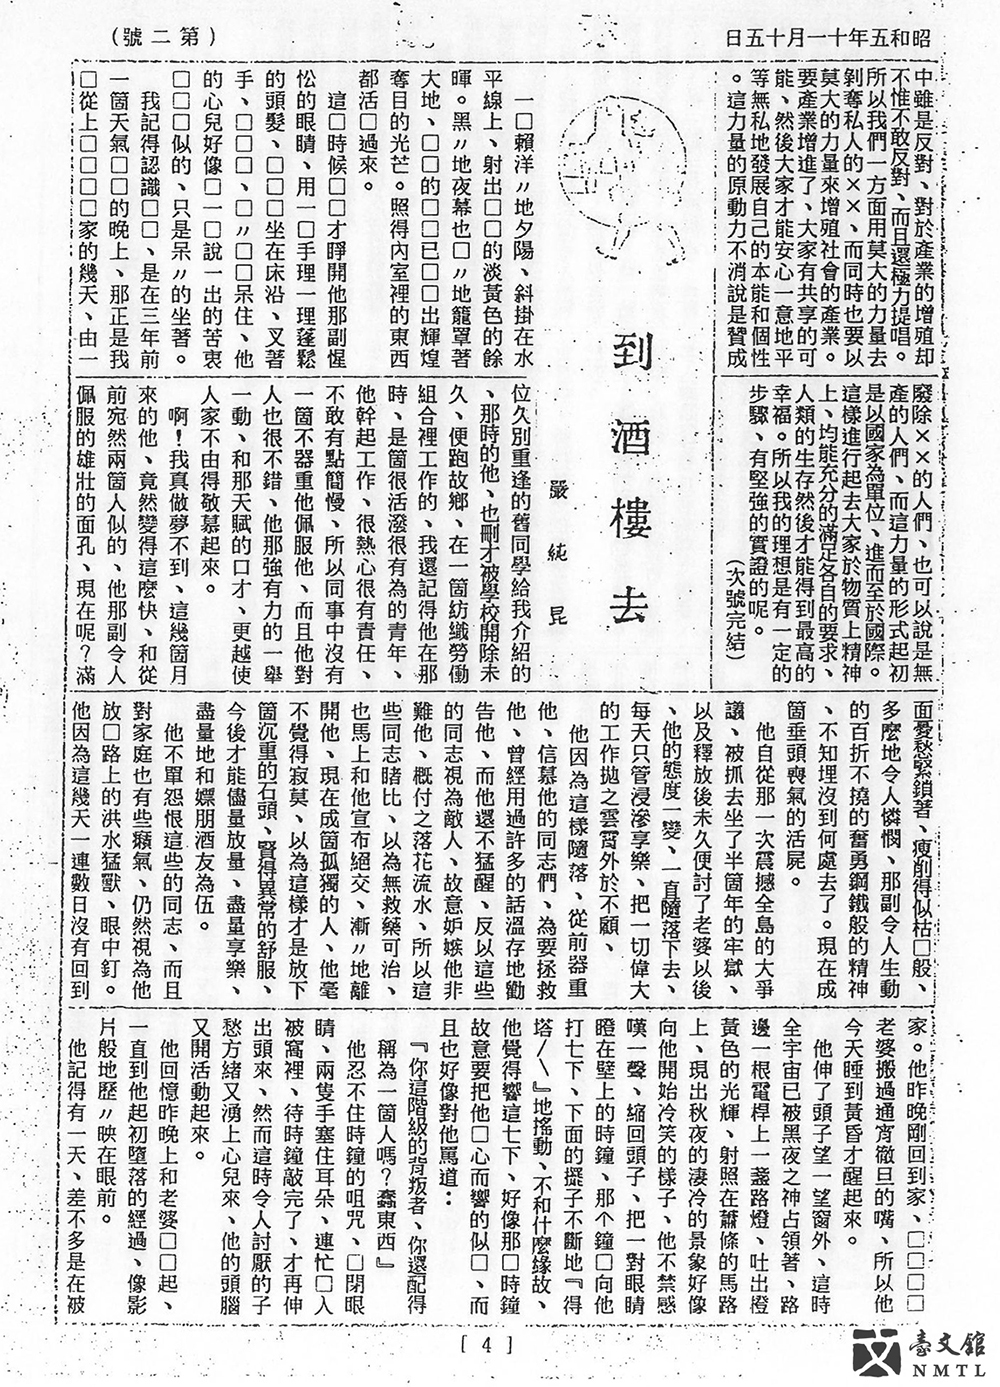 昭和五年十一月十五日
(第二號)
中雖是反對、對於產業的增殖却
不惟不敢反對、而且還極力提唱。
所以我們一方面用莫大的力量去
剝奪私人的××、而同時也要以
莫大的力量來增殖社會的產業。
要產業增進了、大家有共享的可
能、然後大家才能安心一意地平
等無私地發展自己的本能和個性
。這力量的原動力不消說是贊成
廢除××的人們、也可以說是無
產的人們、而這力量的形式起初
是以國家為單位、進而至於國際。
這樣進行起去大家於物質上精神
上、均能充分的滿足各自的要求、
人類的生存然後才能得到最高的
幸福。所以我的理想是有一定的
步驟、有堅強的實證的呢。
(次號完結)
到酒樓去
嚴純昆
一□賴洋〃地夕陽、斜掛在水
平線上、射出□□的淡黃色的餘
暉。黑〃地夜幕也□〃地籠罩著
大地、□□的□□已□□出輝煌
奪目的光芒。照得內室裡的東西
都活□過來。
這□時候□□才睜開他那副惺
忪的眼睛、用一□手理一理蓬鬆
的頭髮、□□□坐在床沿、叉著
手、□□□、□〃□□呆住、他
的心兒好像□一□說一出的苦衷
□□□似的、只是呆〃的坐著。
我記得認識□□、是在三年前
一箇天氣□□的晚上、那正是我
□從上□□□□□家的幾天、由一
位久別重逢的舊同學給我介紹的
、那時的他、也剛才被學校開除未
久、便跑故鄉、在一箇紡織勞働
組合裡工作的、我還記得他在那
時、是箇很活潑很有為的青年、
他幹起工作、很熱心很有責任、
不敢有點簡慢、所以同事中沒有
一箇不器重他佩服他、而且他對
人也很不錯、他那強有力的一舉
一動、和那天賦的口才、更越使
人家不由得敬慕起來。
啊！我真做夢不到、這幾箇月
來的他、竟然變得這麼快、和從
前宛然兩箇人似的、他那副令人
佩服的雄壯的面孔、現在呢？滿
面憂愁緊鎖著、瘦削得似枯□般、
多麼地令人憐憫、那副令人生動
的百折不撓的奮勇鋼鐵般的精神
、不知埋沒到何處去了。現在成
箇垂頭喪氣的活屍。
他自從那一次震撼全島的大爭
議、被抓去坐了半箇年的牢獄、
以及釋放後未久便討了老婆以後
、他的態度一變、一直隨落下去、
每天只管浸滲享樂、把一切偉大
的工作拋之雲霄外於不顧、
他因為這樣隨落、從前器重
他、信慕他的同志們、為要拯救
他、曾經用過許多的話溫存地勸
告他、而他還不猛醒、反以這些
的同志視為敵人、故意妒嫉他非
難他、概付之落花流水、所以這
些同志睹比、以為無救藥可治、
也馬上和他宣布絕交、漸〃地離
開他、現在成箇孤獨的人、他毫
不覺得寂莫、以為這樣才是放下
箇沉重的石頭、覺得異常的舒服、
今後才能儘量放量、盡量享樂、
盡量地和嫖朋酒友為伍。
他不單怨恨這些的同志、而且
對家庭也有些癪氣、仍然視為他
放□路上的洪水猛獸、眼中釘。
他因為這幾天一連數日沒有回到
家。他昨晚剛回到家、□□□□
老婆搬過通宵徹旦的嘴、所以他
今天睡到黃昏才醒起來。
他伸了頭子望一望窗外、這時
全宇宙已被黑夜之神占領著、路
邊一根電桿上一盞路燈、吐出橙
黃色的光輝、射照在蕭條的馬路
上、現出秋夜的淒冷的景象好像
向他開始冷笑的樣子、他不禁感
嘆一聲、縮回頭子、把一對眼睛
瞪在壁上的時鐘、那个鐘□向他
打七下、下面的擺子不斷地『得
塔〱』地搖動、不和什麼緣故、
他覺得響這七下、好像那□時鐘
故意要把他□心而響的似□、而
且也好像對他罵道：
『你這階級的背叛者、你還配得
稱為一箇人嗎？蠢東西』
他忍不住時鐘的咀咒、□閉眼
睛、兩隻手塞住耳朵、連忙□入
被窩裡、待時鐘敲完了、才再伸
出頭來、然而這時令人討厭的子
愁方緒又湧上心兒來、他的頭腦
又開活動起來。
他回憶昨晚上和老婆□□起、
一直到他起初墮落的經過、像影
片般地歷〃映在眼前。
他記得有一天、差不多是在被
[ 4 ]
臺文館
NMTL